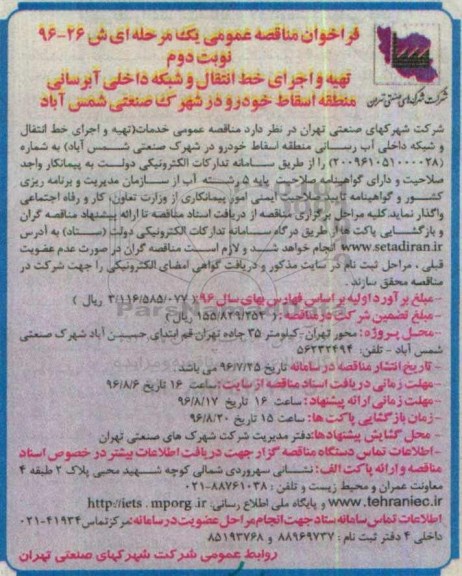 فراخوان مناقصه عمومی یک مرحله ای ش ۲۶-۹۶
نوبت دوم
تهیه و اجرای خط انتقال و شبکه داخلی آبرسانی
منطقه اسقاط خودرو در شهرک صنعتی شمس آباد
شرکت شهرک‌های صنعتی تهران
شرکت شهرکهای صنعتی تهران در نظر دارد مناقصه عمومی خدمات(تهیه و اجرای خط انتقال
و شبکه داخلی آب رسانی منطقه اسقاط خودرو در شهرک صنعتی شمس آباد) به شماره
(۲۰۰۹۶۱۰۵۱۰۰۰۰۲۸) را از طریق سامانه تدارکات الکترونیکی دولت به پیمانکار واجد
صلاحیت و دارای گواهینامه صلاحیت پایه ۵ رشته آب از سازمان مدیریت و برنامه ریزی
کشور و گواهینامه تایید صلاحیت ایمنی امور پیمانکاری از وزارت تعاون، کار و رفاه اجتماعی
واگذار نماید.کلیه مراحل برگزاری مناقصه از دریافت اسناد مناقصه تا ارائه پیشنهاد مناقصه گران
و بازگشایی پاکت ها از طریق درگاه سامانه تدارکات الکترونیکی دولت (ستاد) به آدرس
www.setadiran.ir انجام خواهد شد و لازم است مناقصه گران در صورت عدم عضویت
قبلی ، مراحل ثبت نام در سایت مذکور و دریافت گواهی امضای الکترونیکی را جهت شرکت در
مناقصه محقق سازند .
-مبلغ برآورد اولیه بر اساس فهارس بهای سال ۹۶:( ۳/۱۱۶/۵۸۵/۰۷۷ ریال )
-مبلغ تضمین شرکت در مناقصه:( ۱۵۵/۸۲۹/۲۵۴ ریال)
-محل پروژه: محور تهران-کیلومتر ۳۵ جاده تهران قم ابتدای حسین آباد شهرک صنعتی
شمس آباد - تلفن: ۵۶۲۳۲۴۹۴
- تاریخ انتشار مناقصه در سامانه تاریخ ۹۶/۷/۲۵ می باشد.
-مهلت زمانی دریافت اسناد مناقصه از سایت:ساعت ۱۶ تاریخ ۹۶/۸/۶
-مهلت زمانی ارائه پیشنهاد: ساعت ۱۶ تاریخ ۹۶/۸/۱۷
-زمان بازگشایی پاکت ها: ساعت ۱۵ تاریخ ۹۶/۸/۲۰
- محل گشایش پیشنهادها:دفتر مدیریت شرکت شهرک های صنعتی تهران
-اطلاعات تماس دستگاه مناقصه گزار جهت دریافت اطلاعات بیشتر در خصوص اسناد
مناقصه و ارائه پاکت الف: نشانی سهروردی شمالی کوچه شهید محبی پلاک ۲ طبقه ۴
معاونت عمران و محیط زیست و تلفن : ۸۸۷۶۱۰۳۸-۰۲۱
www.tehraniec.ir و پایگاه ملی اطلاع رسانی: http://iets . mporg .ir
اطلاعات تماس سامانه ستاد جهت انجام مراحل عضویت در سامانه:مرکز تماس ۴۱۹۳۴-۰۲۱
داخلی ۴ دفتر ثبت نام : ۸۸۹۶۹۷۳۷ و ۸۵۱۹۳۷۶۸
روابط عمومی شرکت شهرکهای صنعتی تهران